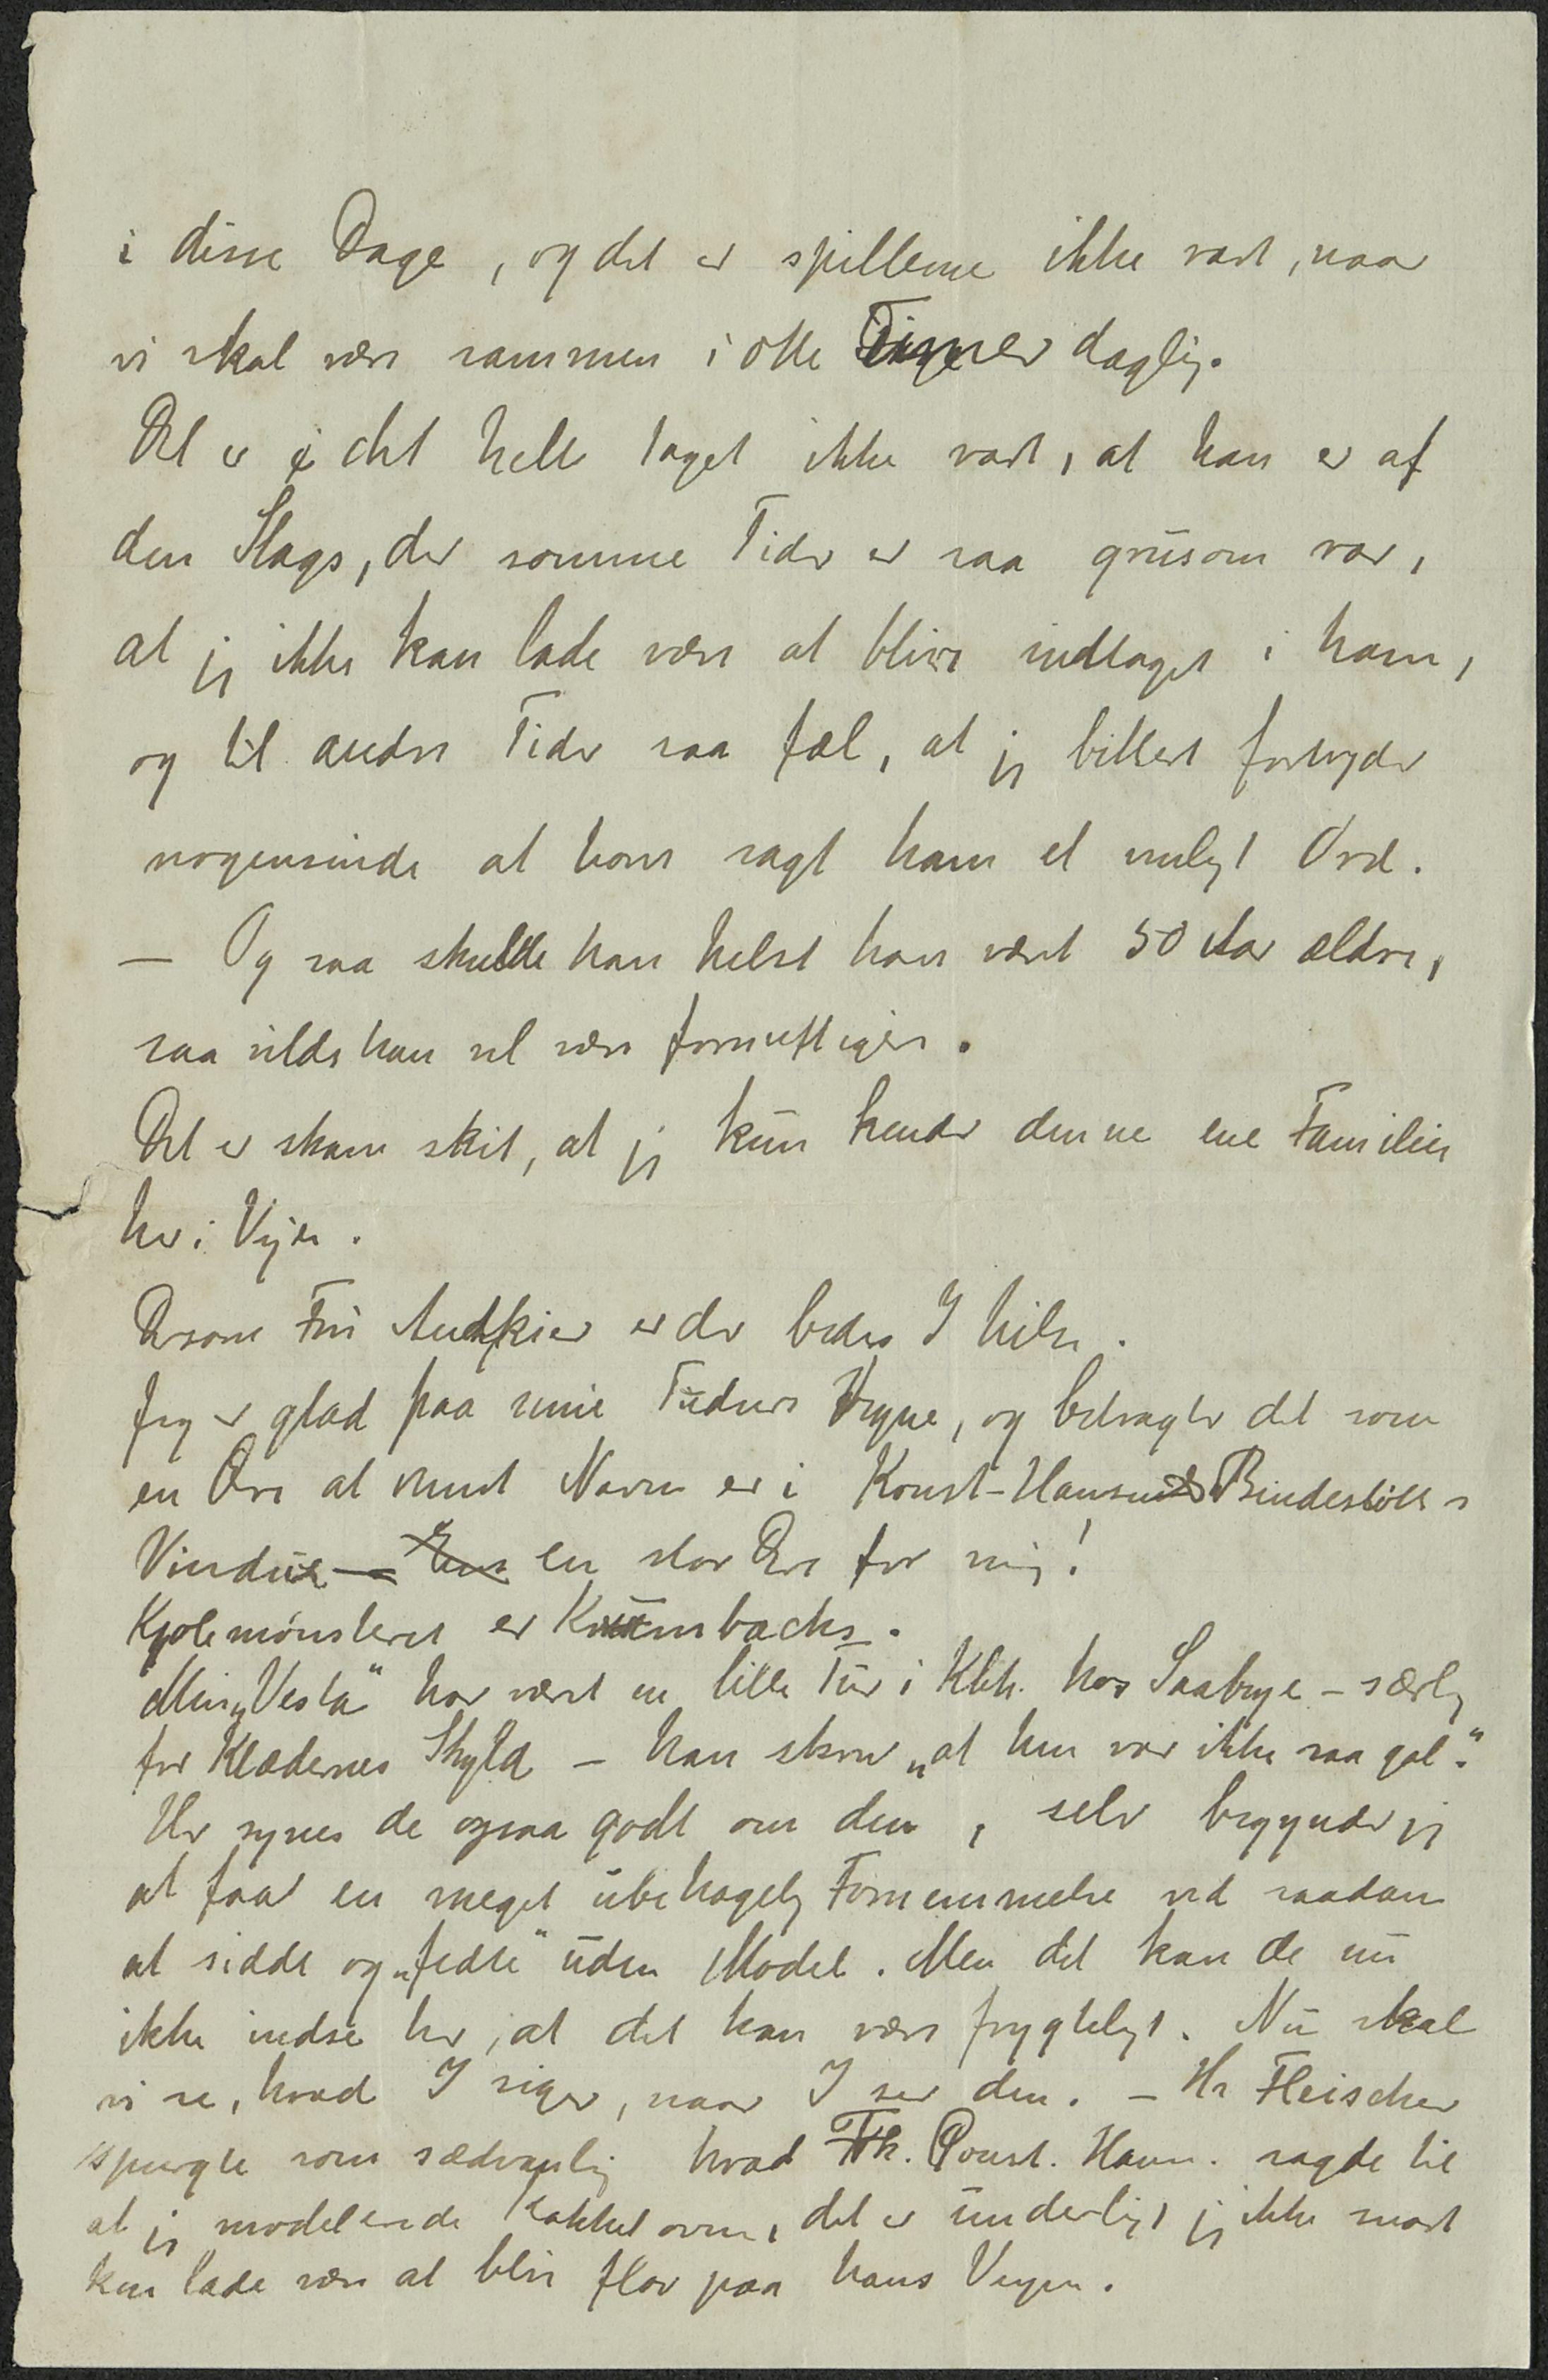 i disse Dage, og det er spillerne ikke rart, naar
vi skal være sammen i otte Timer daglig.
Det er i det hele taget ikke rart, at han er af
den Slags, der somme Tider er saa grusom rar,
at jeg ikke kan lade være at blive indtaget i ham,
og til andre Tider saa fæl, at jeg bittert fortryder
nogensinde at have sagt ham et venligt Ord.
— Og saa skulde han helst have været 50 Aar ældre,
saa vilde han vel være fornuftigere.
Det er skam skit, at jeg kun kender denne ene Familie
her i Vejen.
Dersom Fru Andkjær er der bedes I hilse.
Jeg er glad paa mine Tuders Vegne, og betragter det som
en Ære at mit Navn er i Konst-Hansens Bindestökes
Vindue — en stor Ære for mig!
Kjolemønsteret er Krumbachs.
Min „Vesta" har været en lille Tur i Kbh. hos Saabye – særlig
for Klædernes Skyld – han skrev „at hun var ikke saa gal".
Her synes de ogsaa godt om den, selv begynder jeg
at faa en meget ubehagelig Fornemmelse ved saadan
at sidde og „fedte" uden Model. Men det kan de nu
ikke indse her, at det kan være frygteligt. Nu skal
vi se, hvad I siger, naar I ser den. – Hr Fleischer
spurgte som sædvanlig hvad Fr. Const. Hans. sagde til
at jeg modelerede Kakkelovne, det er underligt jeg ikke snart
kan lade være at blive flov paa hans Vegne.